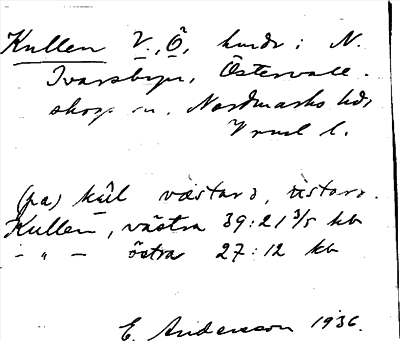 Kullen V., Ö, hmdr i N.
Ivarsbyn, Östervall-
skogs sn, Nordmarks hd,
Vrml l.
(pa) kùl västard, östard.
Kullen, västra 39:21 3/5 kb
- " - östra 27:12 kb
E. Andersson 1936.